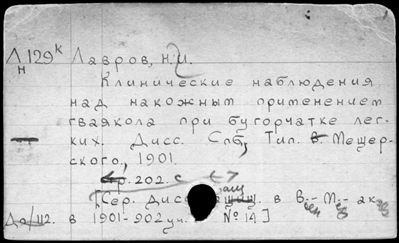 Л 129к Лавров, Н.И.
н
Клинические наблюдения
над накожным применением
гваякола при бугорчатке лег-
ких. Дисс. Спб, Тип. В. Мещер-
ского, 1901.
стр. 202. с
[Сер. Дисс. в В.- М.- ак.
в 1901-902 уч. № 14]